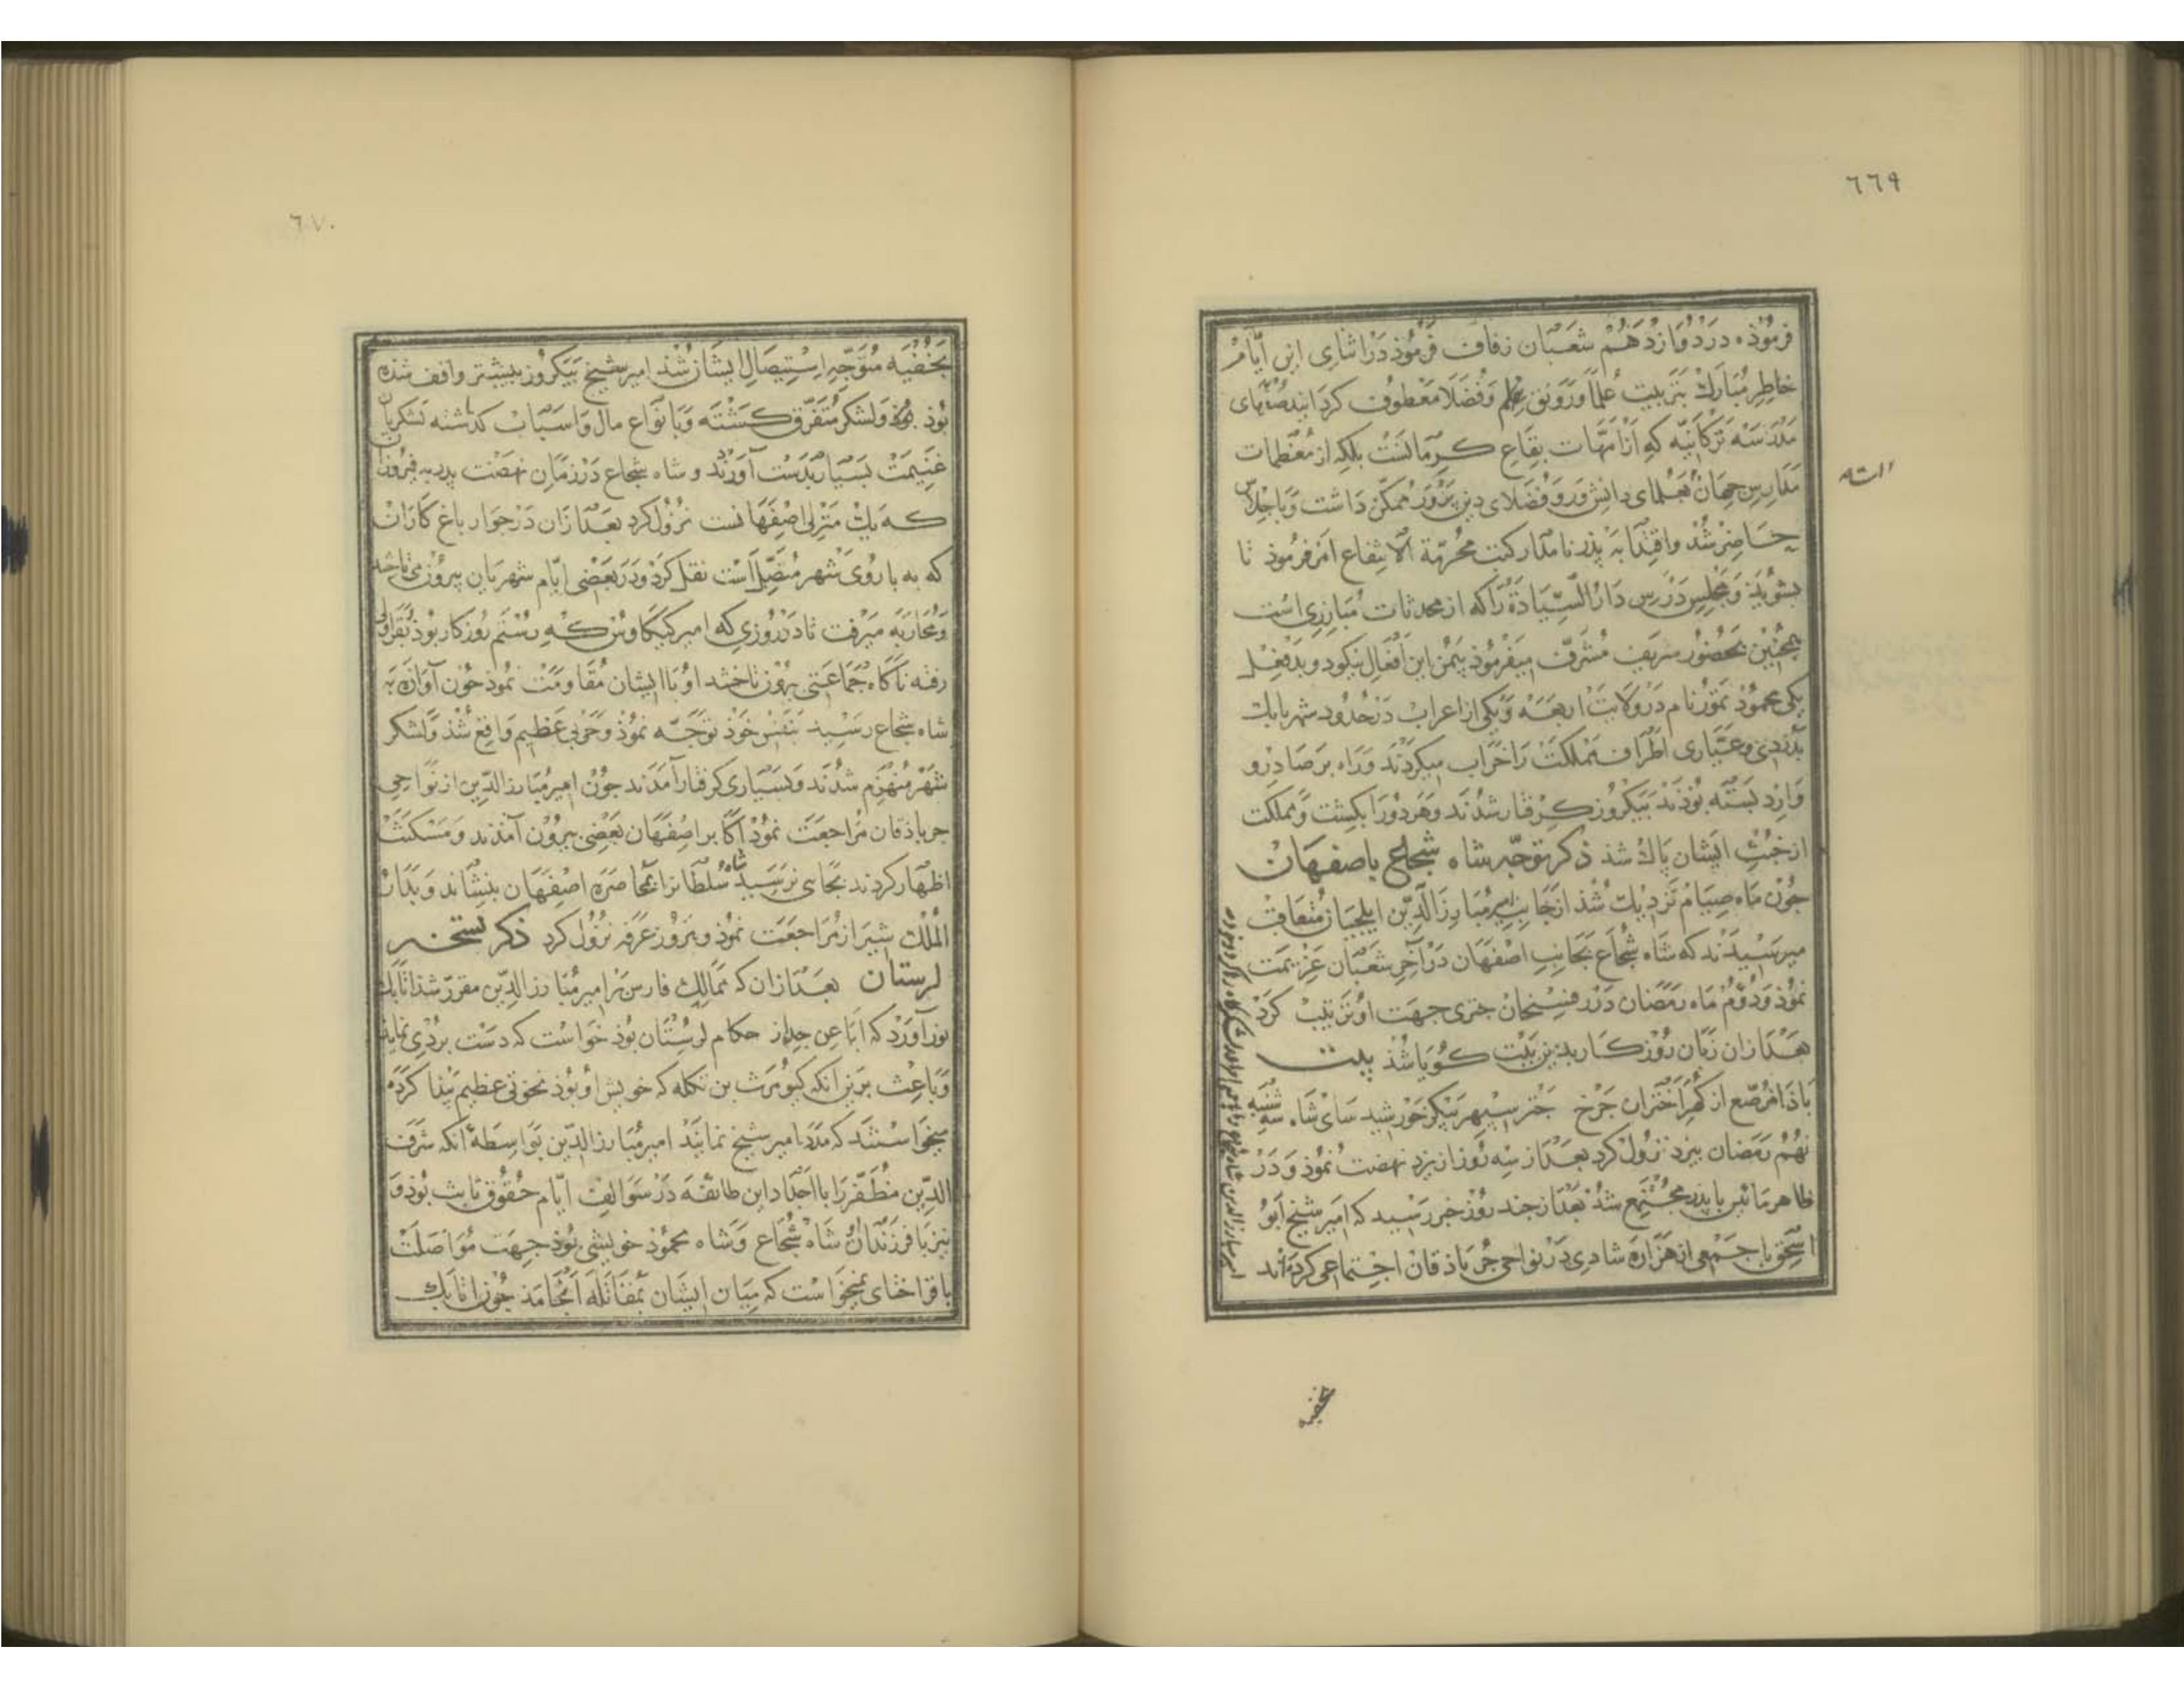 ٦٦٩
فرموذه در دوازدهم شعبان زفاف فرموذ در اثنای این ایام
خاطر مبارك بتربیت علما و رونق علم و فضلا معطوف كردانید
مدرسه تركانیه كه از امهات بقاع كرمانست بلكه از معظمات
مدارس جهان بعلمای دانش ور و فضلای دین پرور ممكن داشت و باجلاس
حاضر شد و اقتدا به پذر نامدار كتب محرمة الانتفاع امر فرموذ تا
بشویند و مجلس درس دار السیادة را كه از محدثات مبارزی است
همچنین بحضور شریف مشرف میفرموذ بیمن این افعال نیكو دو بدفعل
یكی محموذ تمور نام در ولایت اربعه و یكی از اعراب در حدود شهر بابك
بدزدی و عیاری اطراف مملكت را خراب میكردند و راه بر صادر و
وارد بسته بوذند بیكروز كرفتار شدند و هر دو را بكشت و مملكت
از خبث ایشان پاك شذ ذكر توجه شاه شجاع باصفهان
جون ماه صیام نزدیك شذ از جانب امیر مبارز الدین ایلجیان متعاقب
میرسیدند كه شاه شجاع بجانب اصفهان در آخر شعبان عزیمت
نموذ و دوم ماه رمضان در رفسنجان جتری جهت او ترتیب كرد
بعد از ان زبان روزكار بدین بیت كویا شذ بیت
باذا مرصع از كهر اختران جرخ جتر سپهر پیكر خورشید سای شاه سه شنبه
نهم رمضان بیزد نزول كرد بعد از سه روز از یزد نهضت نموذ و در
ظاهر مائین با پذر مجتمع شذ بعد از جند روز خبر رسید كه امیر شیخ ابو
اسحق با جمعی از هزاره شادی در نواحی جرباذقان اجتماعی كرده‌اند
امیر مبارز الدین شاه شجاع را
بخفیه
٦٧٠
بخفیه متوجه استیصال ایشان شذ امیر شیخ بیكروز بیشتر واقف شذه
بوذ و لشكر متفرق كشته و بانواع مال و اسباب كذاشته لشكریان
غنیمت بسیار بدست آوردند و شاه شجاع در زمان نهضت پدر به فیروزان
كه یك منزلی اصفهانست نزول كرد بعد از ان در جوار باغ كاران
كه به باروی شهر متصل است نقل كرد و در بعضی ایام شهریان بیرون می‌تاختند
و محاربه میرفت تا در روزی كه امیر كیكاوس كه رستم روزكار بوذ بقراولی
رفته ناكاه جماعتی بیرون تاختند او با ایشان مقاومت نموذ جون آوازه به
شاه شجاع رسید بنفس خوذ توجه نموذ و حربی عظیم واقع شذ و لشكر
شهر منهزم شدند و بسیاری كرفتار آمدند جون امیر مبارز الدین از نواحی
جرباذقان مراجعت نموذ اكابر اصفهان بعضی بیرون آمذند و مسكنت
اظهار كردند بجایی نرسید شاه سلطانرا بمحاصره اصفهان بنشاند و بدار
الملك شیراز مراجعت نموذ و بروز عرفه نزول كرد ذكر تسخیر
لرستان بعد از ان كه ممالك فارس بر امیر مبارز الدین مقرر شذ اتابك
نورآورد كه ابا عن جد از حكام لرستان بوذ خواست كه دست بردی نماید
و باعث برین آنكه كیومرث بن تكله كه خویش او بوذ نخوتی عظیم پیدا كرده
میخواستند كه مدد امیر شیخ نمایند امیر مبارز الدین بواسطه آنكه شرف
الدین مظفر را با اجداد این طائفه در سوالف ایام حقوق ثابت بوذ و
نیز با فرزندان شاه شجاع و شاه محموذ خویشی بوذ جهت مواصلت
با قراختای نمیخواست كه میان ایشان بمقاتله انجامذ جون اتابك